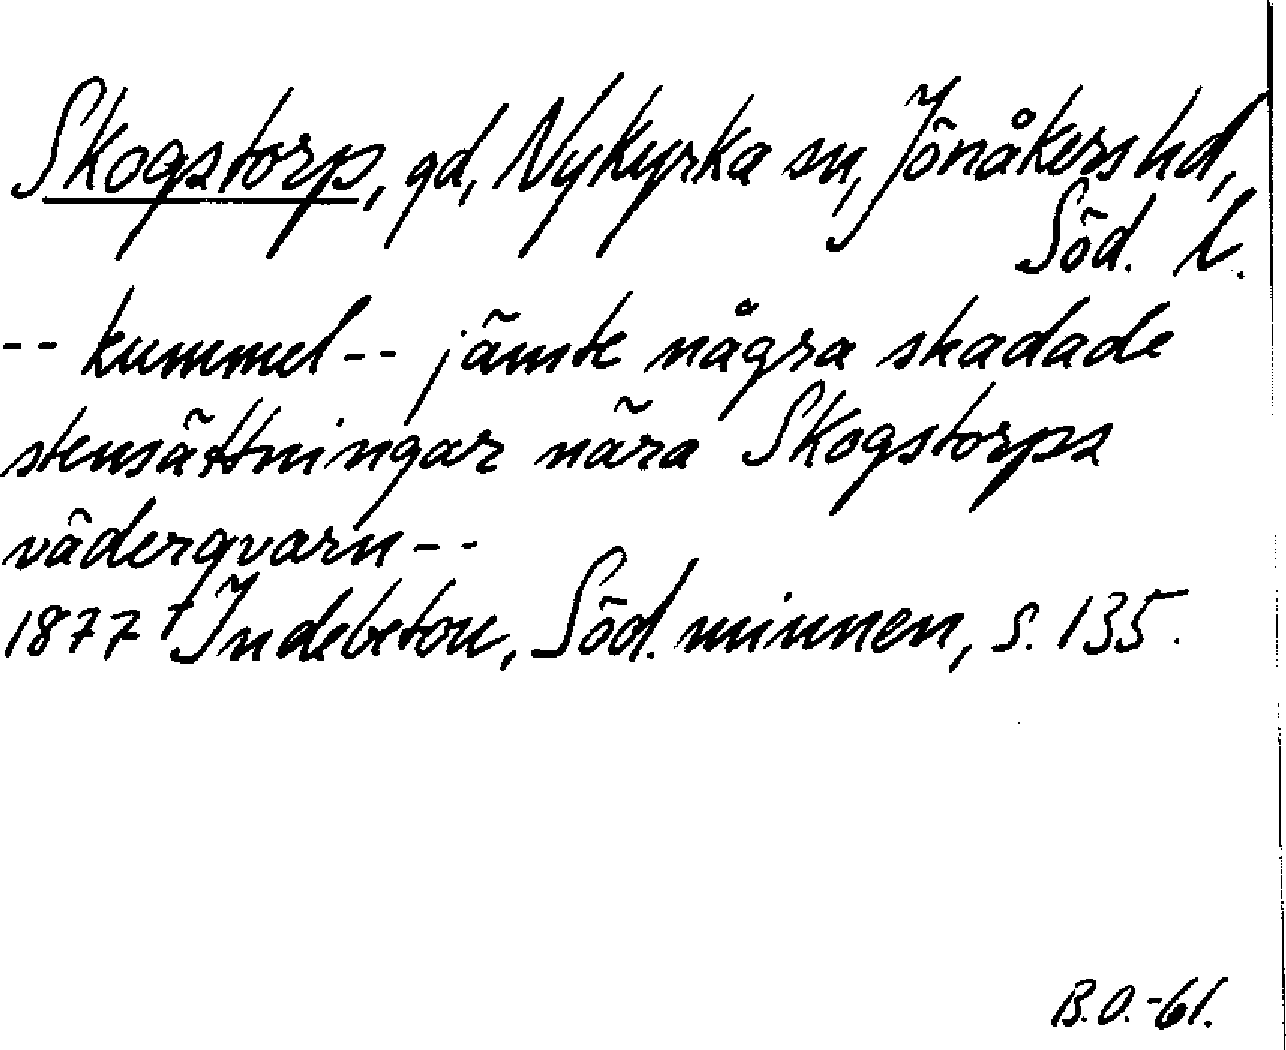 Skogstorp, gd, Nykyrka sn, Jönåkers hd,
Söd. l.
-- kummel -- jämte några skadade
stensättningar nära Skogstorps
väderqvarn --
1877 Indebetou, Söd. minnen, s. 135.
B.O.-61.